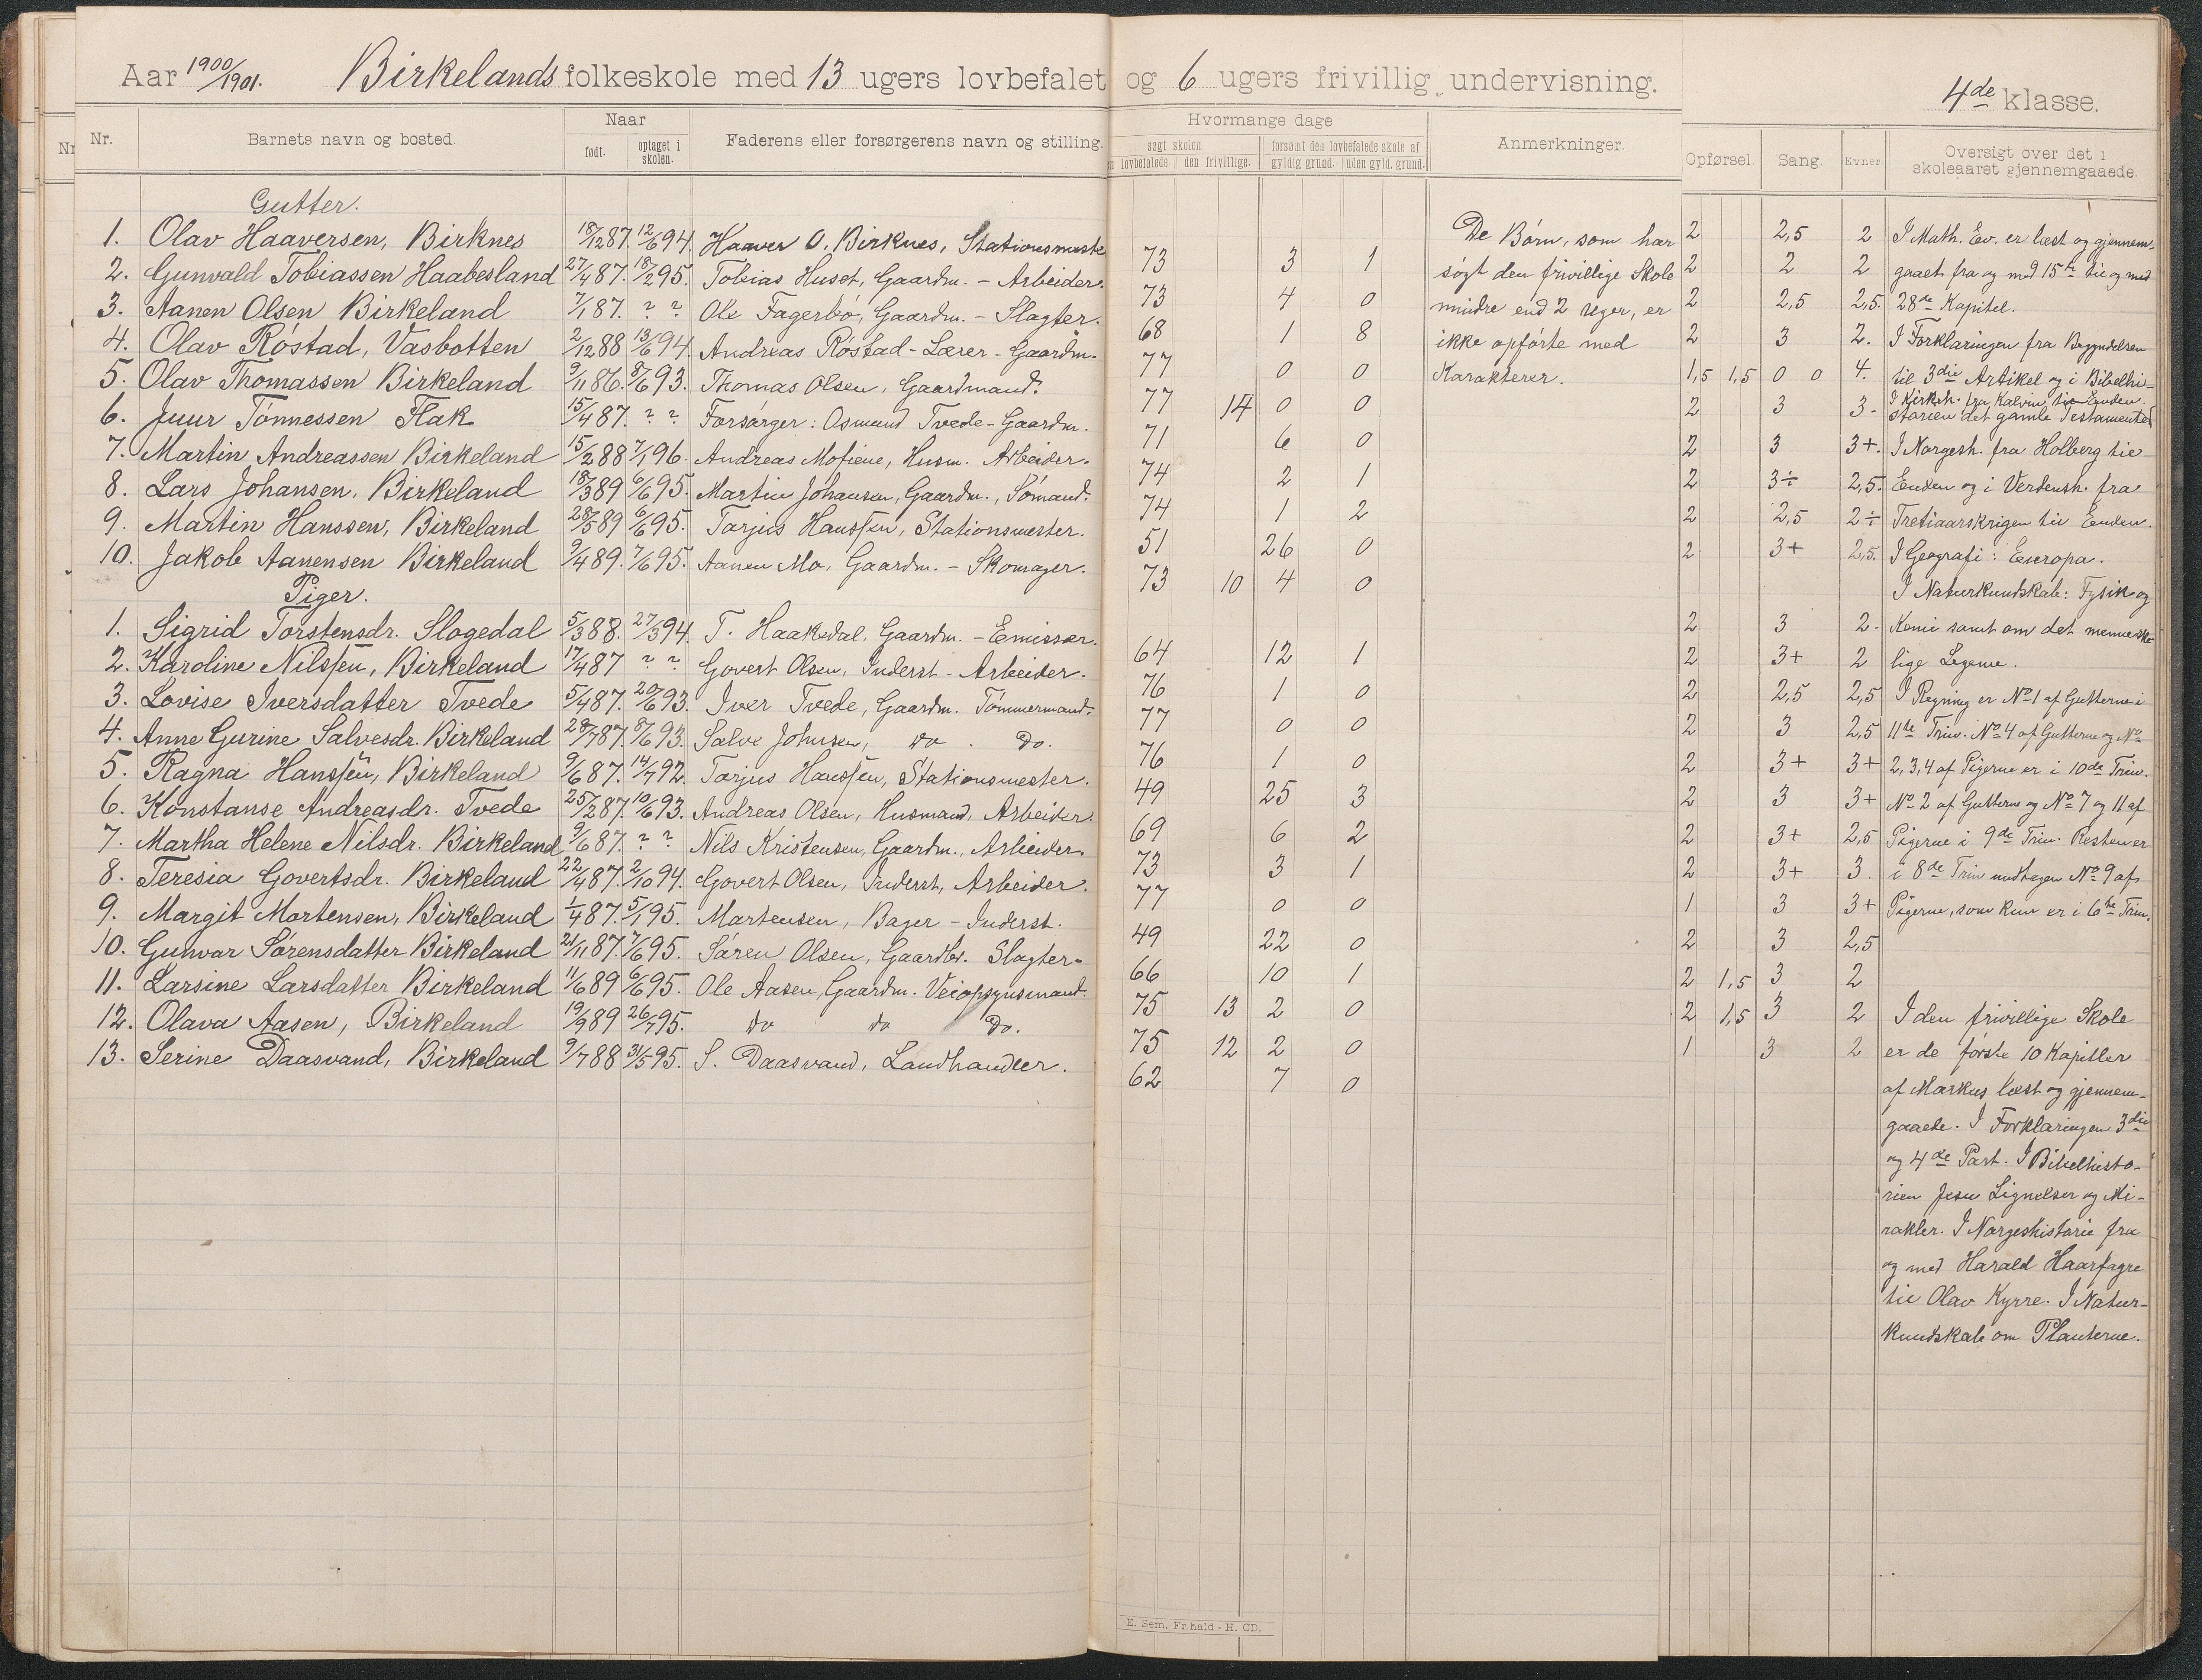 Aar 1900/1901. Birkelands folkeskole med 13 ugers lovbefalet og 6 ugers frivillig undervisning. 4de klasse.
Nr. Barnets navn og bosted. Naar født. optaget i skolen. Faderens eller forsørgerens navn og stilling.
Hvormange dage søgt skolen lovbefalede den frivillige. forsømt den lovbefalede skole af gyldig grund. uden gyld. grund. Anmerkninger. Opførsel. Sang. Evner Oversigt over det i skoleaaret gjennemgaaede.
Gutter.
1. Olav Haaversen, Birknes 18/12 87. 12/6 94. Haaver O. Birknes, Stationsmeste
2. Gunvald Tobiassen Haabesland 27/4 87. 18/2 95. Tobias Huset, Gaardm. - Arbeider.
3. Aanen Olsen Birkeland 7/1 87. ? ? Ole Fagerbø, Gaardm. - Slagter.
4. Olav Röstad, Vasbotten 2/12 88 13/6 94. Andreas Röstad - Lærer - Gaardm.
5. Olav Thomassen Birkeland 9/11 86. 8/6 93. Thomas Olsen, Gaardmand.
6. Juur Tönnessen Flak 15/4 87. ? ? Forsörger: Osmund Tvede - Gaardm.
7. Martin Andreassen Birkeland 15/2 88 7/1 96. Andreas Mofiene, Husm. Arbeider.
8. Lars Johansen, Birkeland 18/3 89 6/6 95. Martin Johansen, Gaardm., Sömand.
9. Martin Hanssen, Birkeland 28/5 89 6/6 95. Tarjus Hanssen, Stationsmester.
10. Jakob Aanensen Birkeland 9/4 89. 7/6 95. Aanen Mo, Gaardm. - Skomager.
Piger.
1. Sigrid Torstensdr. Slogedal 5/3 88. 27/3 94. T. Haakedal, Gaardm. - Emissær.
2. Karoline Nilssen, Birkeland 17/4 87 ? ? Govert Olsen, Inderst - Arbeider.
3. Lovise Iversdatter Tvede 5/4 87. 20/6 93. Iver Tvede, Gaardm. Tömmermand.
4. Anne Gurine Salvesdr. Birkeland 28/7 87. 8/6 93. Salve Johnsen, do. Do.
5. Ragna Hanssen, Birkeland 9/6 87. 14/7 92. Tarjus Hanssen, Stationsmester.
6. Konstanse Andreasdr. Tvede 25/2 87. 10/6 93. Andreas Olsen, Husmand, Arbeider.
7. Martha Helene Nilsdr. Birkeland 9/6 87. ? ? Nils Kristensen, Gaardm., Arbeider.
8. Teresia Govertsdr. Birkeland 22/4 87. 2/10 94. Govert Olsen, Inderst, Arbeider.
9. Margit Mortensen, Birkeland 1/4 87. 5/1 95. Martensen, Bager - Inderst.
10. Gunvor Sörensdatter Birkeland 21/11 87. 7/6 95. Sören Olsen, Gaardbr. Slagter.
11. Larsine Larsdatter Birkeland 11/6 89 6/6 95. Ole Aasen, Gaardm. Veiopsynsmand.
12. Olava Aasen, Birkeland 19/9 89 26/7 95. do do Do.
13. Serine Daasvand, Birkeland 9/7 88 31/5 95. S. Daasvand, Landhandler.
73 3 1
73 4 0
68 1 8
77 0 0
77 14 0 0
71 6 0
74 2 1
74 1 2
51 26 0
73 10 4 0
64 12 1
76 1 0
77 0 0
76 1 0
49 25 3
69 6 2
73 3 1
77 0 0
49 22 0
66 10 1
75 13 2 0
75 12 2 0
62 7 0
De Börn, som har
sögt den frivillige Skole
mindre end 2 Uger, er
ikke opförte med
Karakterer.
2 2,5 2
2 2 2
2 2,5 2,5.
2 3 2.
1,5 1,5 0 0 4.
2 3 3-
2 3 3+.
2 3÷ 2,5.
2 2,5 2÷
2 3+ 2,5.
2 3 2-
2 3+ 2
2 2,5 2,5
2 3 2,5
2 3+ 3+
2 3 3+
2 3+ 2,5
2 3+ 3.
1 3 3+
2 3 2,5
2 1,5 3 2
2 1,5 3 2
1 3 2
I Math. Ev. er læst og gjennem-
gaaet fra og med 15de til og med
28de Kapitel.
I Forklaringen fra Begyndelsen
til 3die Artikel og i Bibelhi-
I Kirkeh. fra Kalvin til Enden.
storien det gamle Testamente.
I Norgesh. fra Holberg til
Enden og i Verdensh. fra
Tretiaarskrigen til Enden.
I Geografi: Europa.
I Naturkundskab: Fysik og
Kemi samt om det menneske-
lige Legeme.
I Regning er No 1 af Gutterne i
11te Trin. No 4 af Gutterne og No
2, 3, 4 af Pigerne er i 10de Trin.
No 2 af Gutterne og No 7 og 11 af
Pigerne i 9de Trin. Resten er
i 8de Trin undtagen No 9 af
Pigerne, som kun er i 6te Trin.
I den frivillige Skole
er de förste 10 Kapitler
af Markus læst og gjennem-
gaaede. I Forklaringen 3die
og 4de Part. I Bibelhisto-
rien Jesu Lignelser og Mi-
rakler. I Norgeshistorie fra
og med Harald Haarfagre
til Olav Kyrre. I Natur-
kundskab om Planterne.
E. Sem, Fr.hald - H. CD.